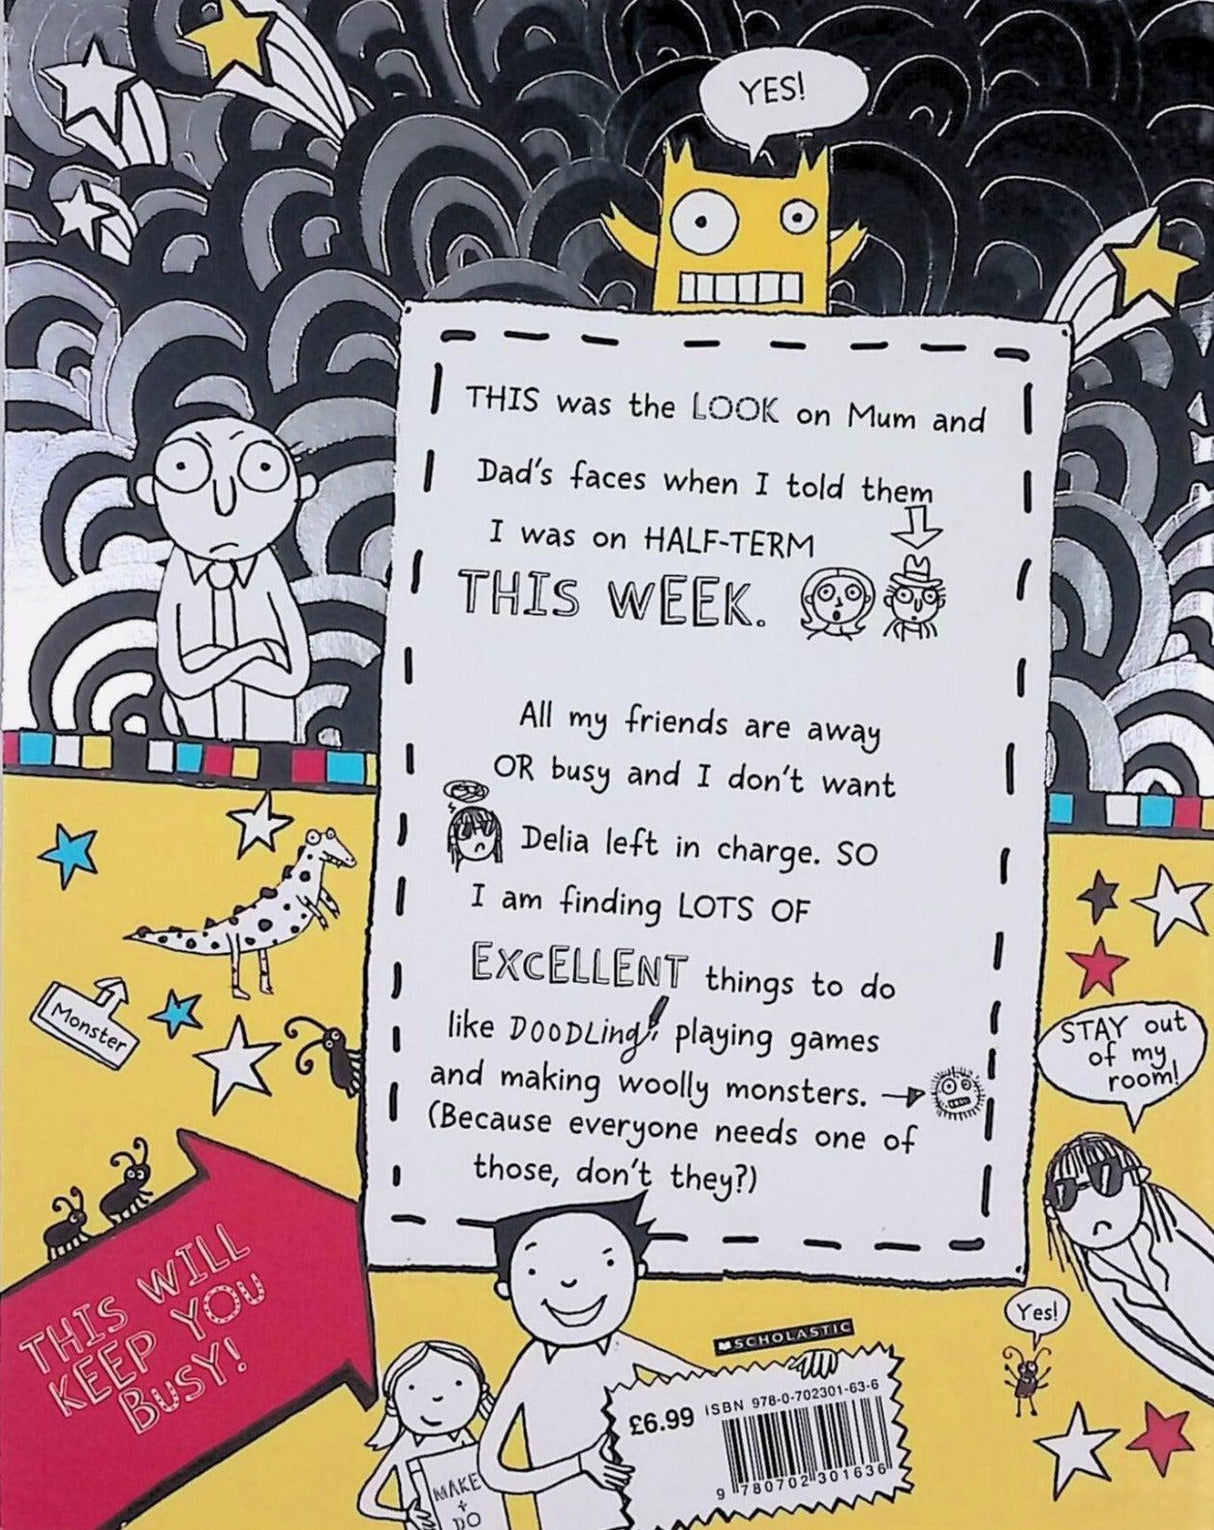 YES!
THIS was the LOOK on Mum and
Dad's faces when I told them
I was on HALF-TERM
THIS WEEK.
All my friends are away
OR busy and I don't want
Delia left in charge. SO
I am finding LOTS OF
EXCELLENT things to do
like DOODLing, playing games
and making woolly monsters.
(Because everyone needs one of
those, don't they?)
Monster
STAY out
of my
room!
THIS WILL
KEEP YOU
BUSY!
Yes!
MAKE
+
DO
SCHOLASTIC
£6.99
ISBN 978-0-702301-63-6
9 780702 301636